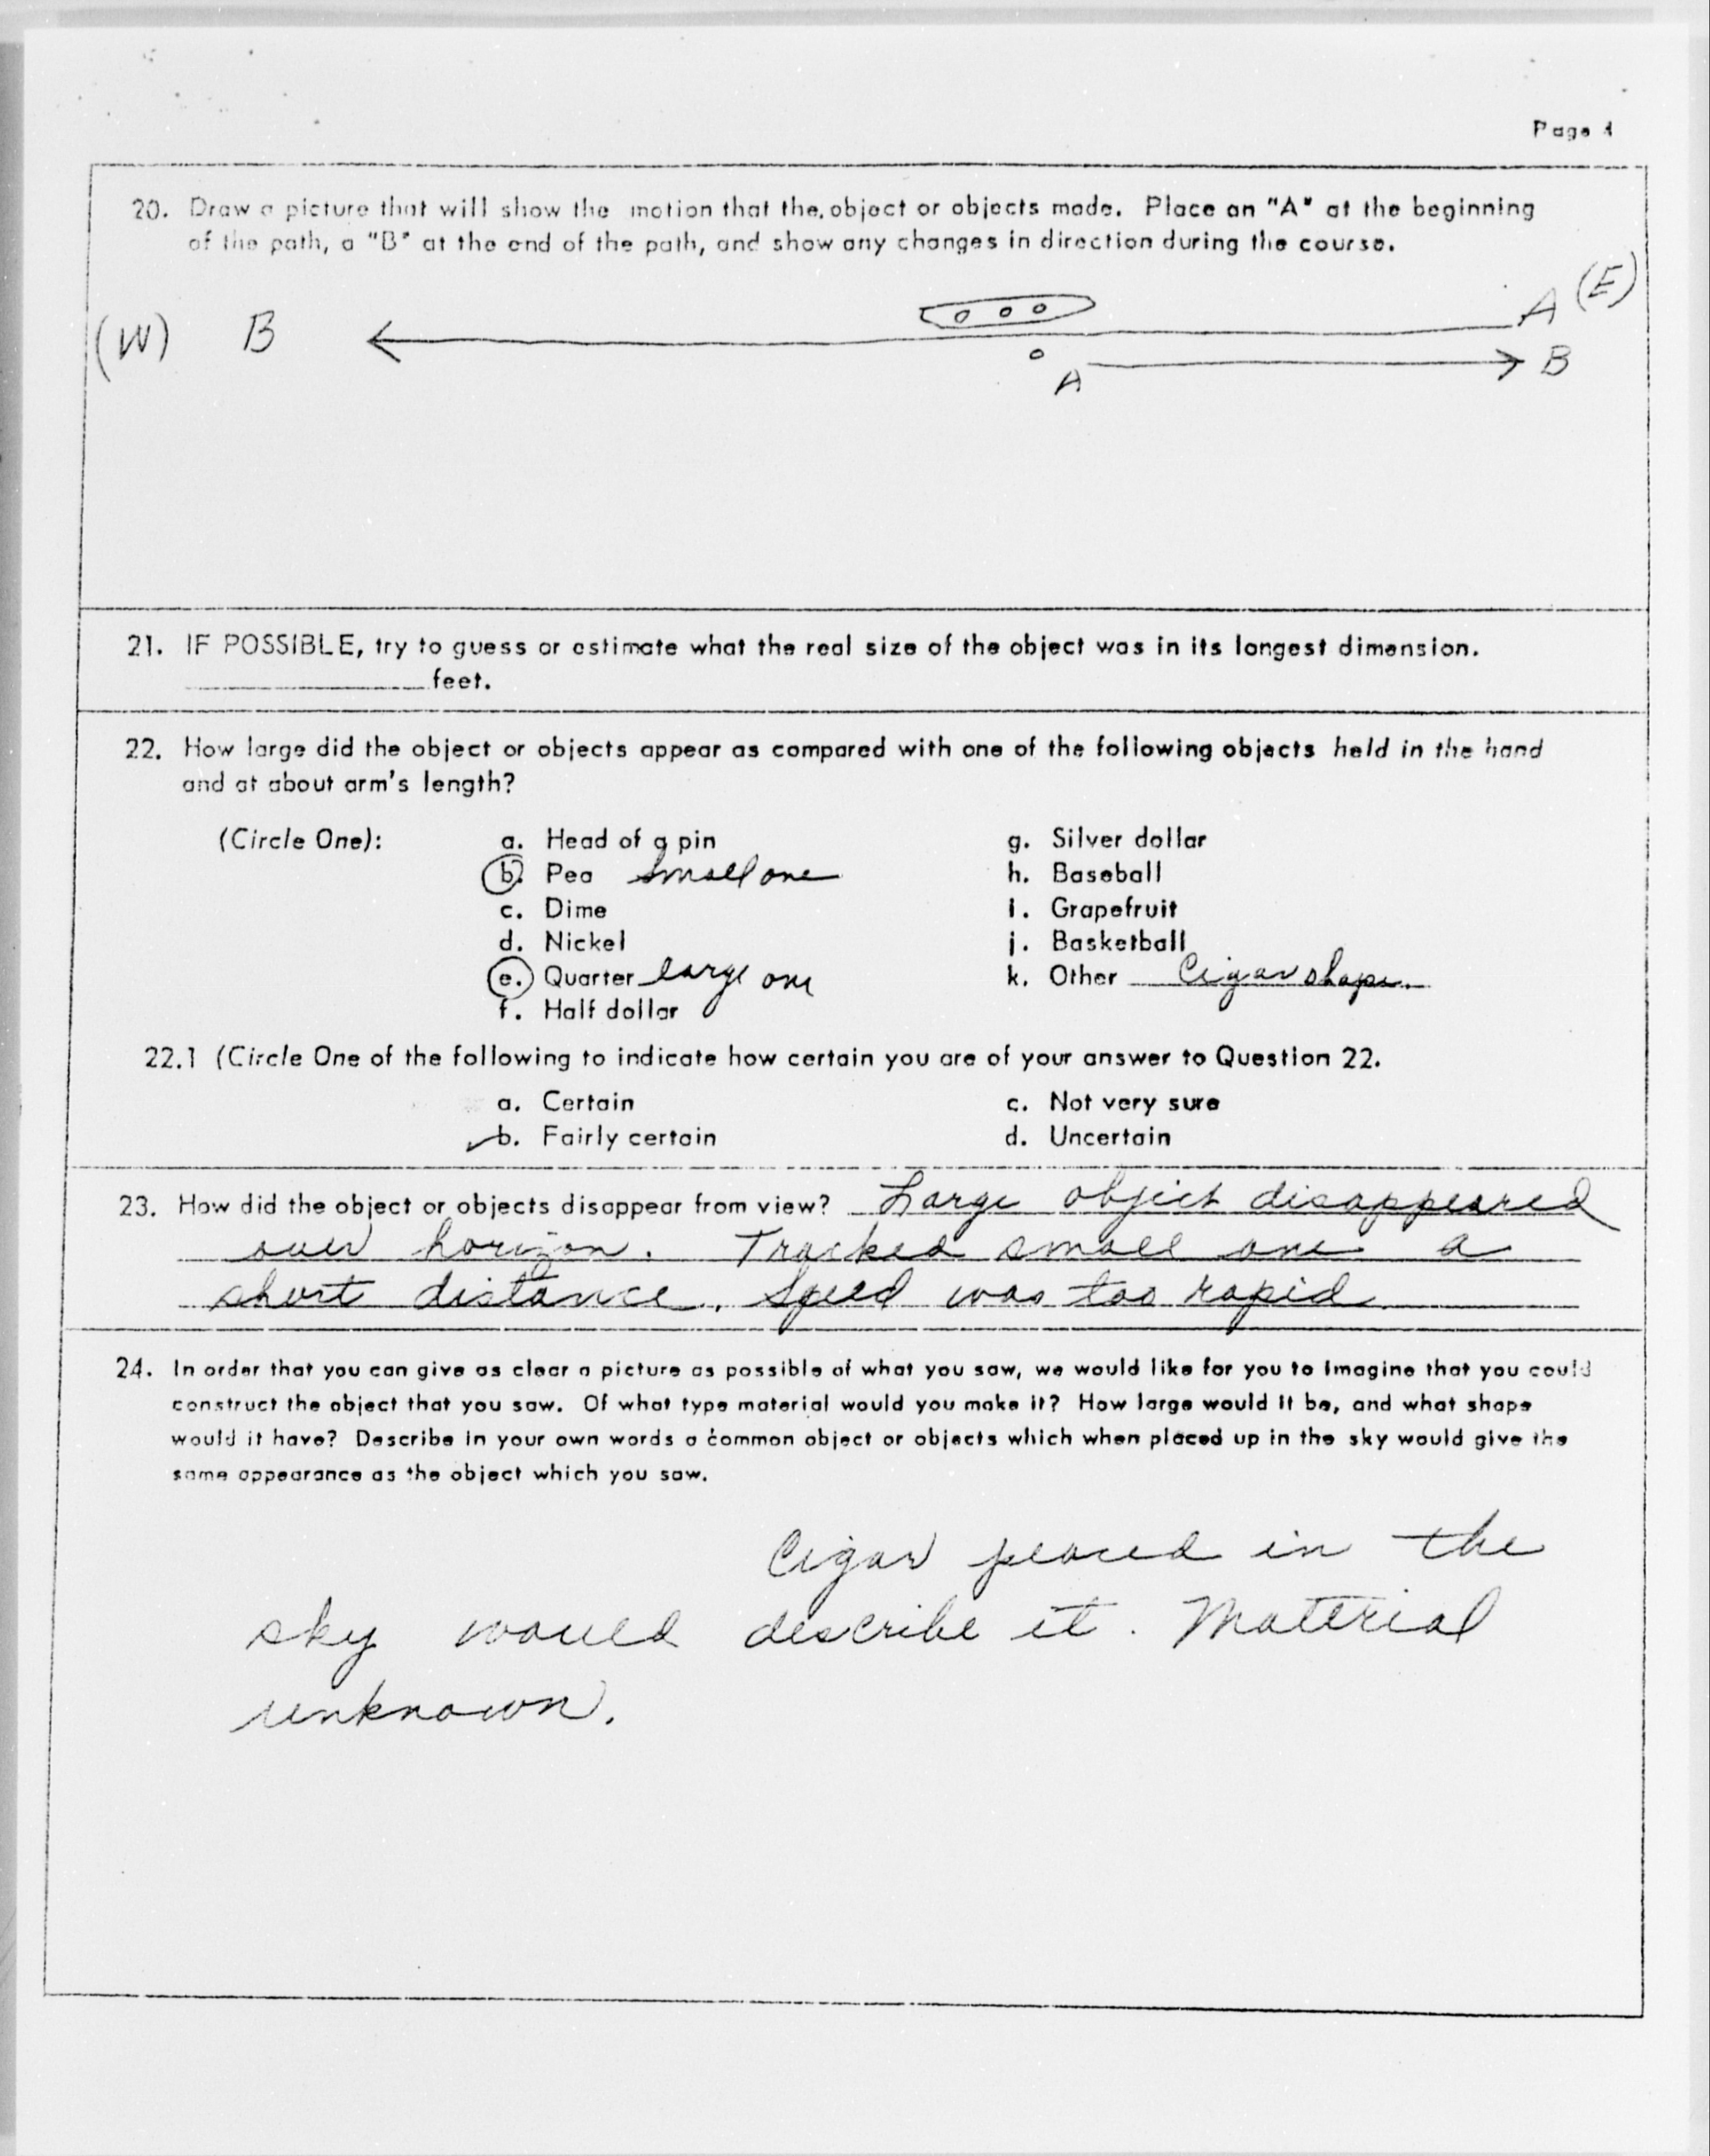 Page 4
20. Draw a picture that will show the motion that the object or objects made. Place an "A" at the beginning
of the path, a "B" at the end of the path, and show any changes in direction during the course.
(W) B A (E)
A B
21. IF POSSIBLE, try to guess or estimate what the real size of the object was in its longest dimension.
feet.
22. How large did the object or objects appear as compared with one of the following objects held in the hand
and at about arm's length?
(Circle One): a. Head of a pin g. Silver dollar
b. Pea small one h. Baseball
c. Dime i. Grapefruit
d. Nickel j. Basketball
e. Quarter large one k. Other Cigar shape.
f. Half dollar
22.1 (Circle One of the following to indicate how certain you are of your answer to Question 22.
a. Certain c. Not very sure
b. Fairly certain d. Uncertain
23. How did the object or objects disappear from view? Large object disappeared
over horizon. Tracked small one a
short distance. Speed was too rapid
24. In order that you can give as clear a picture as possible of what you saw, we would like for you to imagine that you could
construct the object that you saw. Of what type material would you make it? How large would it be, and what shape
would it have? Describe in your own words a common object or objects which when placed up in the sky would give the
same appearance as the object which you saw.
Cigar placed in the
sky would describe it. Material
unknown.